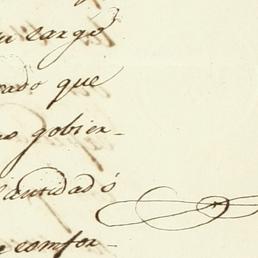 su cargo
rado que
gobier-
cantidad ó
comfor-